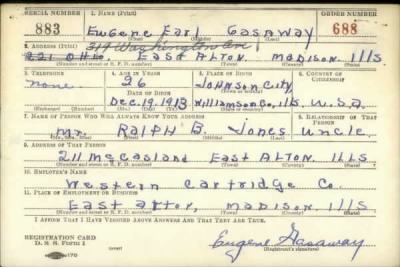 SERIAL NUMBER 1. NAME (Print) ORDER NUMBER
883 Eugene Earl Gasaway 688
(First) (Middle) (Last)
2. ADDRESS (Print) 319 Washington Ave
221 Ohio, EAST ALTON, MADISON, ILLS
(Number and street or R. F. D. number) (Town) (County) (State)
3. TELEPHONE 4. AGE IN YEARS 5. PLACE OF BIRTH 6. COUNTRY OF CITIZENSHIP
none. 26 JOHNSON CITY,
DATE OF BIRTH (Town or county)
Dec. 19, 1913 Williamson Co., ILLS U.S.A.
(Exchange) (Number) (Mo.) (Day) (Yr.) (State or country)
7. NAME OF PERSON WHO WILL ALWAYS KNOW YOUR ADDRESS 8. RELATIONSHIP OF THAT PERSON
Mr. RALPH B. Jones Uncle
(Mr., Mrs., Miss) (First) (Middle) (Last)
9. ADDRESS OF THAT PERSON
211 McCasland EAST ALTON, ILLS
(Number and street or R. F. D. number) (Town) (County) (State)
10. EMPLOYER'S NAME
Western Cartridge Co.
11. PLACE OF EMPLOYMENT OR BUSINESS
East Alton, MADISON, ILLS
(Number and street or R. F. D. number) (Town) (County) (State)
I AFFIRM THAT I HAVE VERIFIED ABOVE ANSWERS AND THAT THEY ARE TRUE.
REGISTRATION CARD
D. S. S. Form 1 Eugene Gasaway
(Registrant's signature)